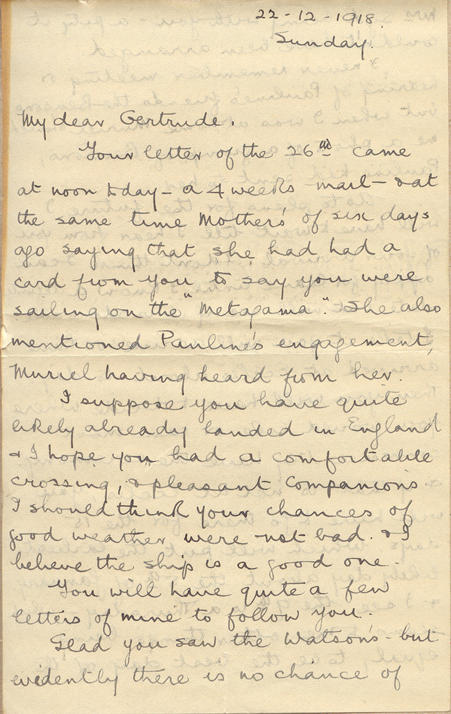 22-12-1918.
Sunday.
My dear Gertrude.
Your letter of the 26th came
at noon today - a 4 weeks mail - & at
the same time Mother's of six days
ago saying that she had had a
card from you to say you were
sailing on the "Metagama". She also
mentioned Pauline's engagement,
Muriel having heard from her.
I suppose you have quite
likely already landed in England
& I hope you had a comfortable
crossing, & pleasant companions.
I should think your chances of
good weather were not bad. & I
believe the ship is a good one.
You will have quite a few
letters of mine to follow you.
Glad you saw the Watsons - but
evidently there is no chance of